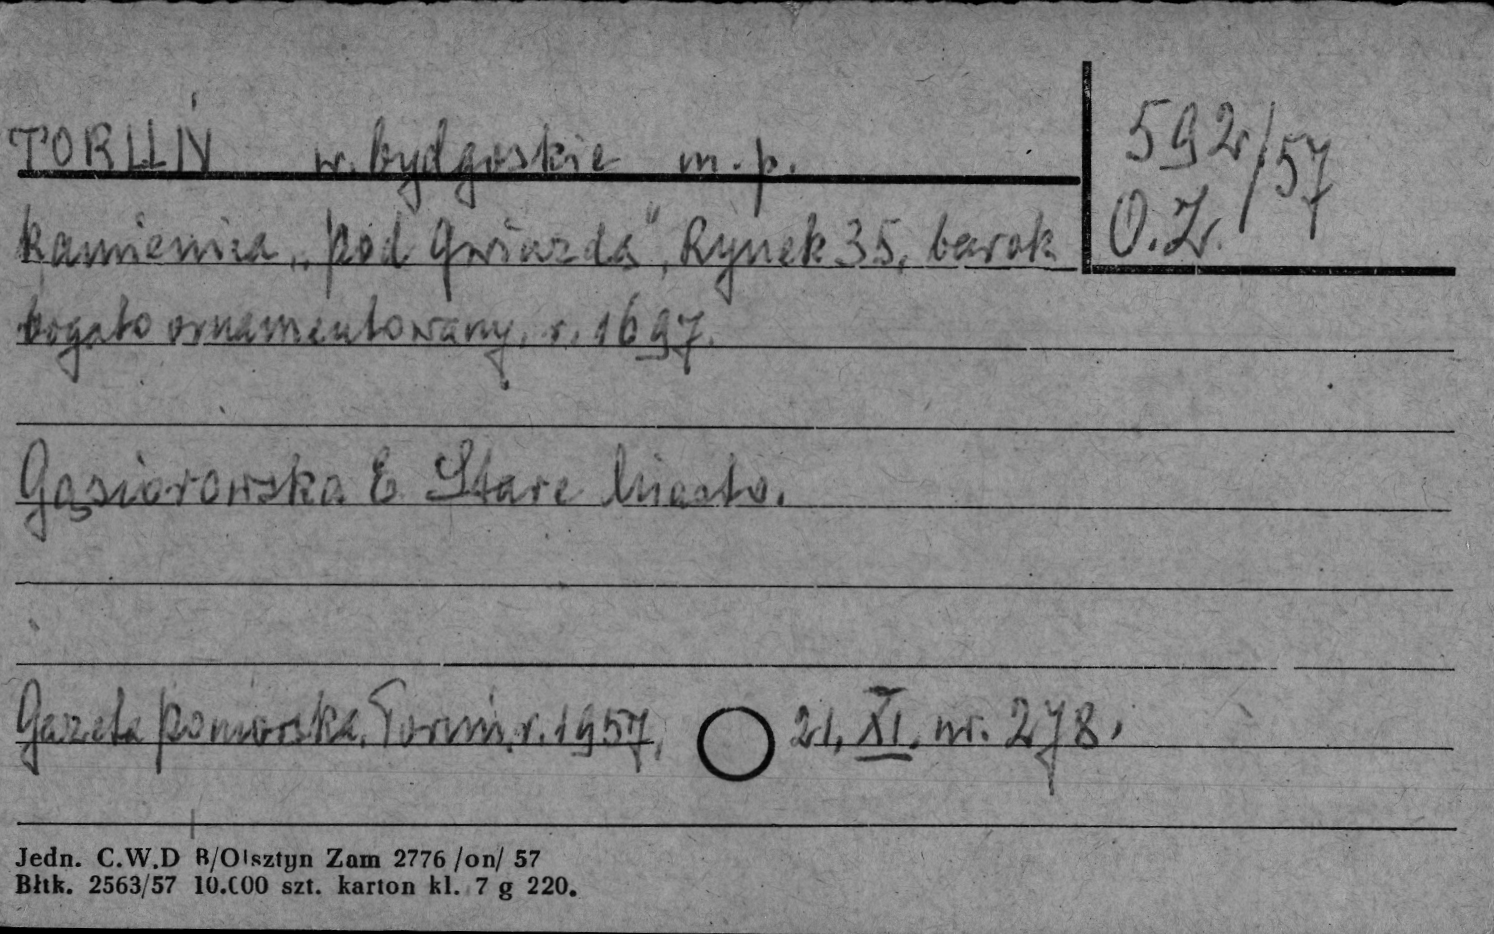 TORUŃ w. bydgoskie m.p.
592/57
O.Z.
kamienica „pod Gwiazdą", Rynek 35, barok
bogato ornamentowany, r. 1697.
Gąsiorowska E. Stare Miasto.
Gazeta Pomorska, Toruń, r. 1957, 21. XI. nr. 278.
Jedn. C.W.D B/Olsztyn Zam 2776 /on/ 57
Błtk. 2563/57 10.000 szt. karton kl. 7 g 220.